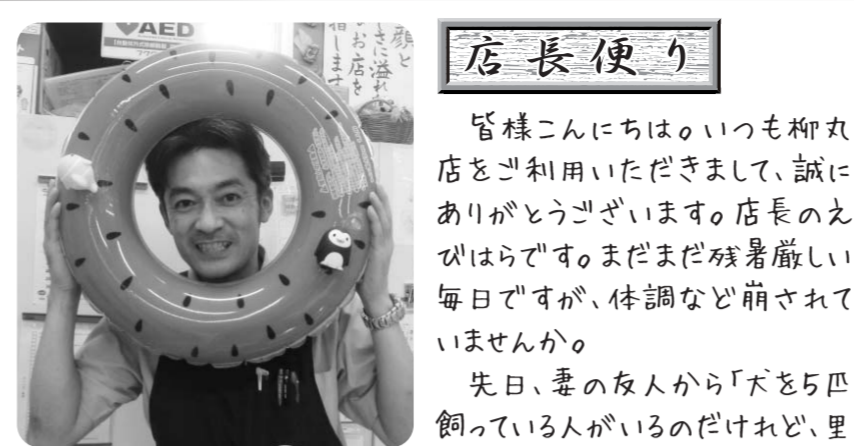 AED
顔と
さに溢れ
のお店を
指します
店長便り
皆様こんにちは。いつも柳丸
店をご利用いただきまして、誠に
ありがとうございます。店長のえ
びはらです。まだまだ残暑厳しい
毎日ですが、体調など崩されて
いませんか。
先日、妻の友人から「犬を5匹
飼っている人がいるのだけれど、里